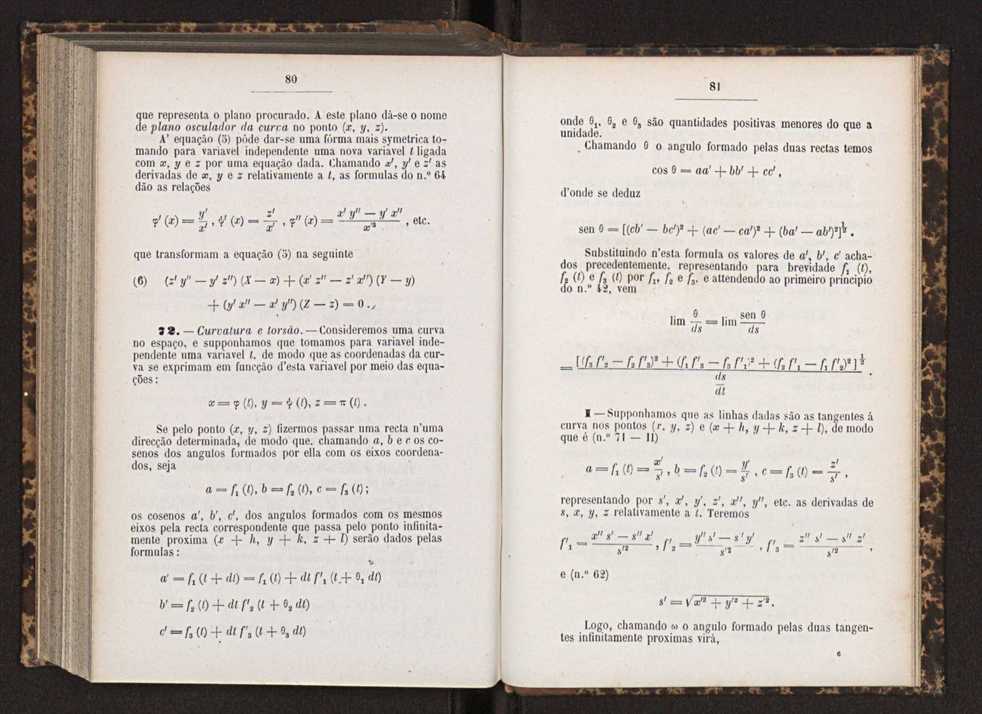 80
que representa o plano procurado. A este plano dá-se o nome
de plano osculador da curva no ponto (x, y, z).
A' equação (5) póde dar-se uma fórma mais symetrica to-
mando para variavel independente uma nova variavel t ligada
com x, y e z por uma equação dada. Chamando x', y' e z' as
derivadas de x, y e z relativamente a t, as formulas do n.º 64
dão as relações
φ' (x) = y'/x' , ψ' (x) = z'/x' , φ'' (x) = (x' y'' — y' x'')/x'³ , etc.
que transformam a equação (5) na seguinte
(6) (z' y'' — y' z'') (X — x) + (x' z'' — z' x'') (Y — y)
+ (y' x'' — x' y'') (Z — z) = 0 .
72. — Curvatura e torsão. — Consideremos uma curva
no espaço, e supponhamos que tomamos para variavel inde-
pendente uma variavel t, de modo que as coordenadas da cur-
va se exprimam em funcção d'esta variavel por meio das equa-
ções :
x = φ (t), y = ψ (t), z = π (t) .
Se pelo ponto (x, y, z) fizermos passar uma recta n'uma
direcção determinada, de modo que, chamando a, b e c os co-
senos dos angulos formados por ella com os eixos coordena-
dos, seja
a = f₁ (t), b = f₂ (t), c = f₃ (t) ;
os cosenos a', b', c', dos angulos formados com os mesmos
eixos pela recta correspondente que passa pelo ponto infinita-
mente proxima (x + h, y + k, z + l) serão dados pelas
formulas :
a' = f₁ (t + dt) = f₁ (t) + dt f'₁ (t + θ₁ dt)
b' = f₂ (t) + dt f'₂ (t + θ₂ dt)
c' = f₃ (t) + dt f'₃ (t + θ₃ dt)
81
onde θ₁, θ₂ e θ₃ são quantidades positivas menores do que a
unidade.
Chamando θ o angulo formado pelas duas rectas temos
cos θ = aa' + bb' + cc' ,
d'onde se deduz
sen θ = [(cb' — bc')² + (ac' — ca')² + (ba' — ab')²]^½ .
Substituindo n'esta formula os valores de a', b', c' acha-
dos precedentemente, representando para brevidade f₁ (t),
f₂ (t) e f₃ (t) por f₁, f₂ e f₃, e attendendo ao primeiro principio
do n.º 42, vem
lim θ/ds = lim sen θ/ds
= [(f₃ f'₂ — f₂ f'₃)² + (f₁ f'₃ — f₃ f'₁)² + (f₂ f'₁ — f₁ f'₂)²]^½ / (ds/dt) .
I — Supponhamos que as linhas dadas são as tangentes á
curva nos pontos (x, y, z) e (x + h, y + k, z + l), de modo
que é (n.º 71 — II)
a = f₁ (t) = x'/s' , b = f₂ (t) = y'/s' , c = f₃ (t) = z'/s' ,
representando por s', x', y', z', x'', y'', etc. as derivadas de
s, x, y, z relativamente a t. Teremos
f'₁ = (x'' s' — s'' x')/s'² , f'₂ = (y'' s' — s'' y')/s'² , f'₃ = (z'' s' — s'' z')/s'² ,
e (n.º 62)
s' = √(x'² + y'² + z'²) .
Logo, chamando ω o angulo formado pelas duas tangen-
tes infinitamente proximas virá,
6